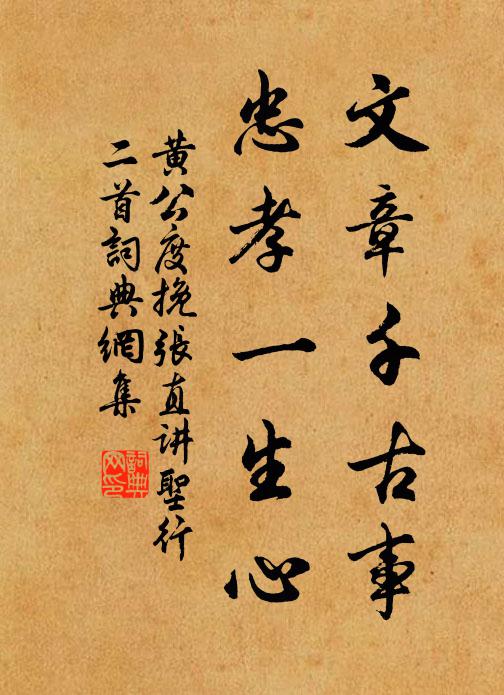 文章千古事
忠孝一生心
黄公度挽張直讲聖行
二首詞典網集
詞典网印